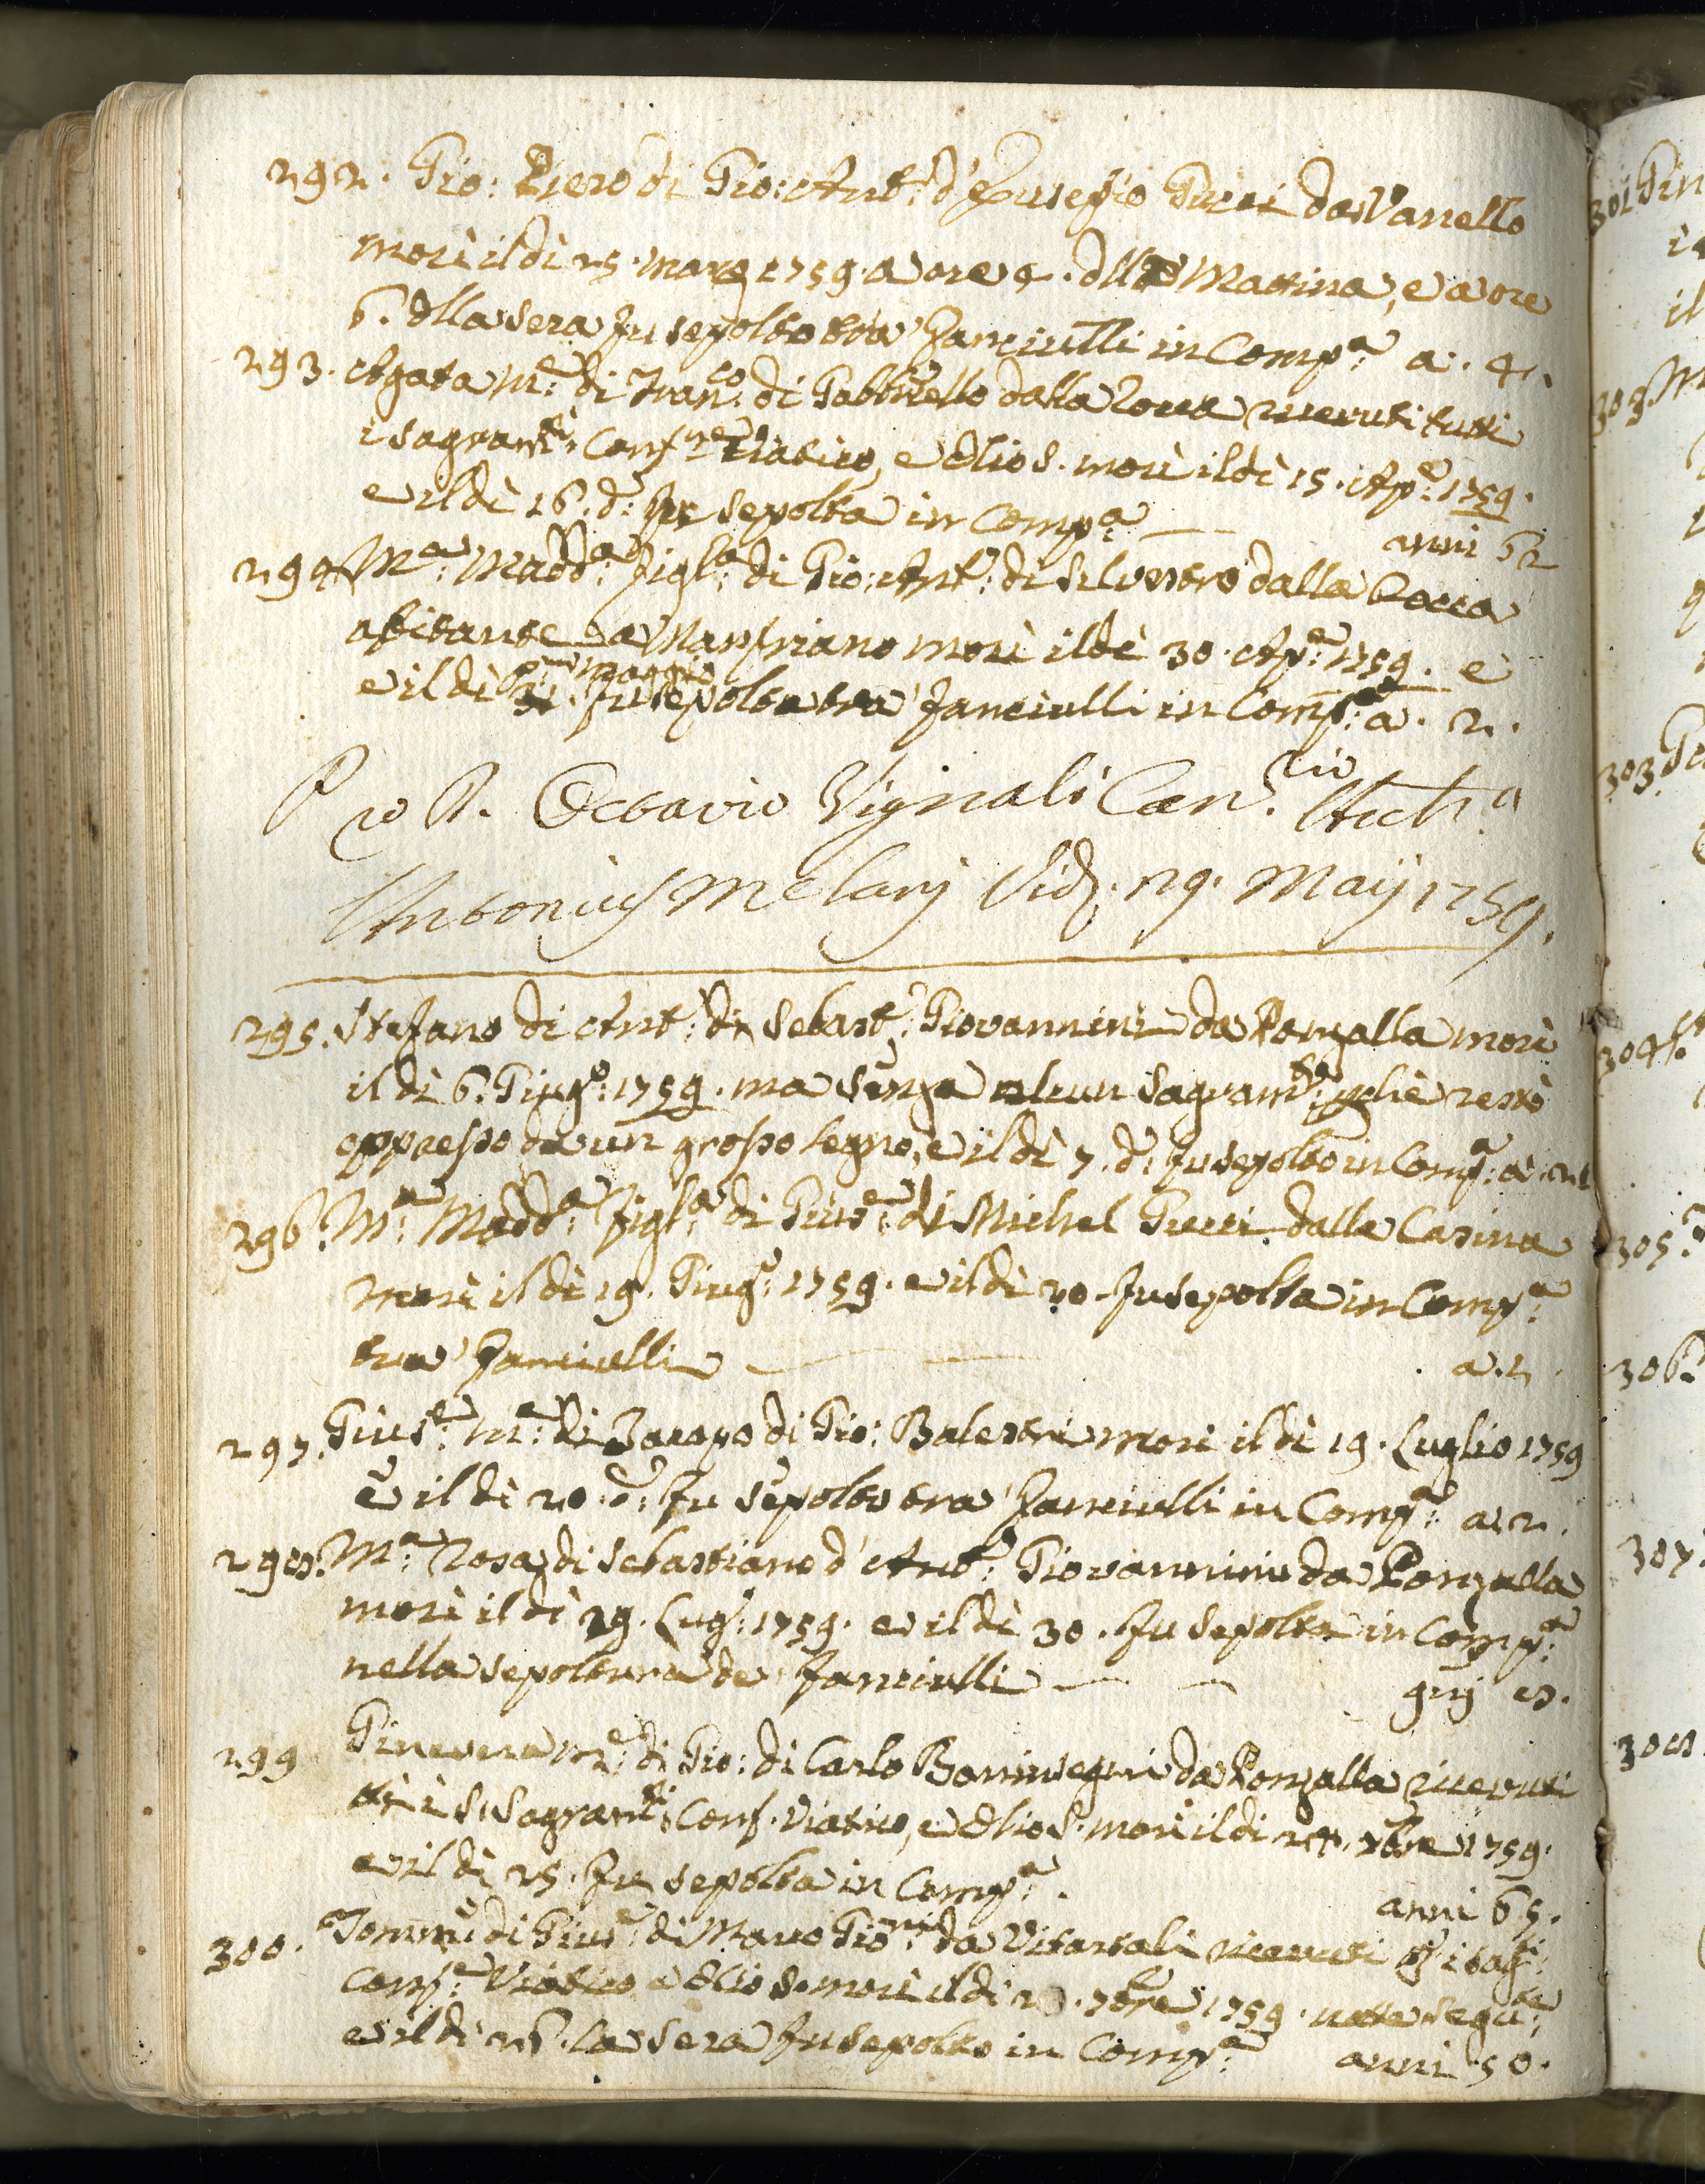 292. Gio: Piero di Gio: Ant:o d'Eusepio Pucci da Vanello
morì il dì 25. marz 1759. a ore 4. dlla Mattina, e a ore
6. dlla sera fu sepolto tra' Fanciulli in Comp:a a. 4.
293. Agata M:e di Fran:co di Gabbriello dalla Rocca ricevuti tutti
i sagram:ti Conf:ne Viatico, e Olio S. morì il dì 15. Ap:e 1759.
e il dì 16. d:o fu sepolta in Comp:a
anni 62
294. M:a Madd:a Figl:a di Gio: Ant:o di Silvestro dalla Rocca
abitante a Manfriano morì il dì 30. Ap:e 1759. e
e il dì P:mo Maggio fu sepolta tra' Fanciulli in Comp:a a. 2.
Pro R. Octavio Vignali Can:rio Auth:a
Antonius Melanj Vid. 29. Maij 1759.
295. Stefano di Ant:o di Sebast:o Giovannini da Ponzalla morì
il dì 6. Giug:o 1759. ma senza alcun sagram:to perchè restò
oppresso da un grosso legno, e il dì 7. d:o fu sepolto in Comp:a a. 21
296. M:a Madd:a Figl:a di Gius:e di Michel Pucci dalla Casina
morì il dì 19. Giug:o 1759. e il dì 20. fu sepolta in Comp:a
tra' Fanciulli
a. 2.
297. Gius:e M:a di Jacopo di Gio: Balestri morì il dì 19. Luglio 1759
e il dì 20. d:o fu sepolto tra' Fanciulli in Comp:a a. 2.
298. M:a Rosa di Sebastiano d'Ant:o Giovannini da Ponzalla
morì il dì 29. Lug:o 1759. e il dì 30. fu sepolta in Comp:a
nella sepoltura de' Fanciulli
gnj 8.
299 Ginevera M:e di Gio: di Carlo Boninsegni da Ponzalla ricevuti
tti i SS. Sagram:ti Conf. Viatico, e Olio S. morì il dì 24. 7bre 1759.
e il dì 25. fu sepolta in Comp:a.
anni 65.
300. Tomm:o di Gius:e di Marco Gio:ni da Vitartali ricevuti
Conf:e Viatico e Olio S. morì il dì 7bre 1759. notte segu:te
e il dì 26. la sera fu sepolto in Comp:a
anni 50.
301 Gin
il
302. M
303. Gi
304.
305.
306.
307.
308.